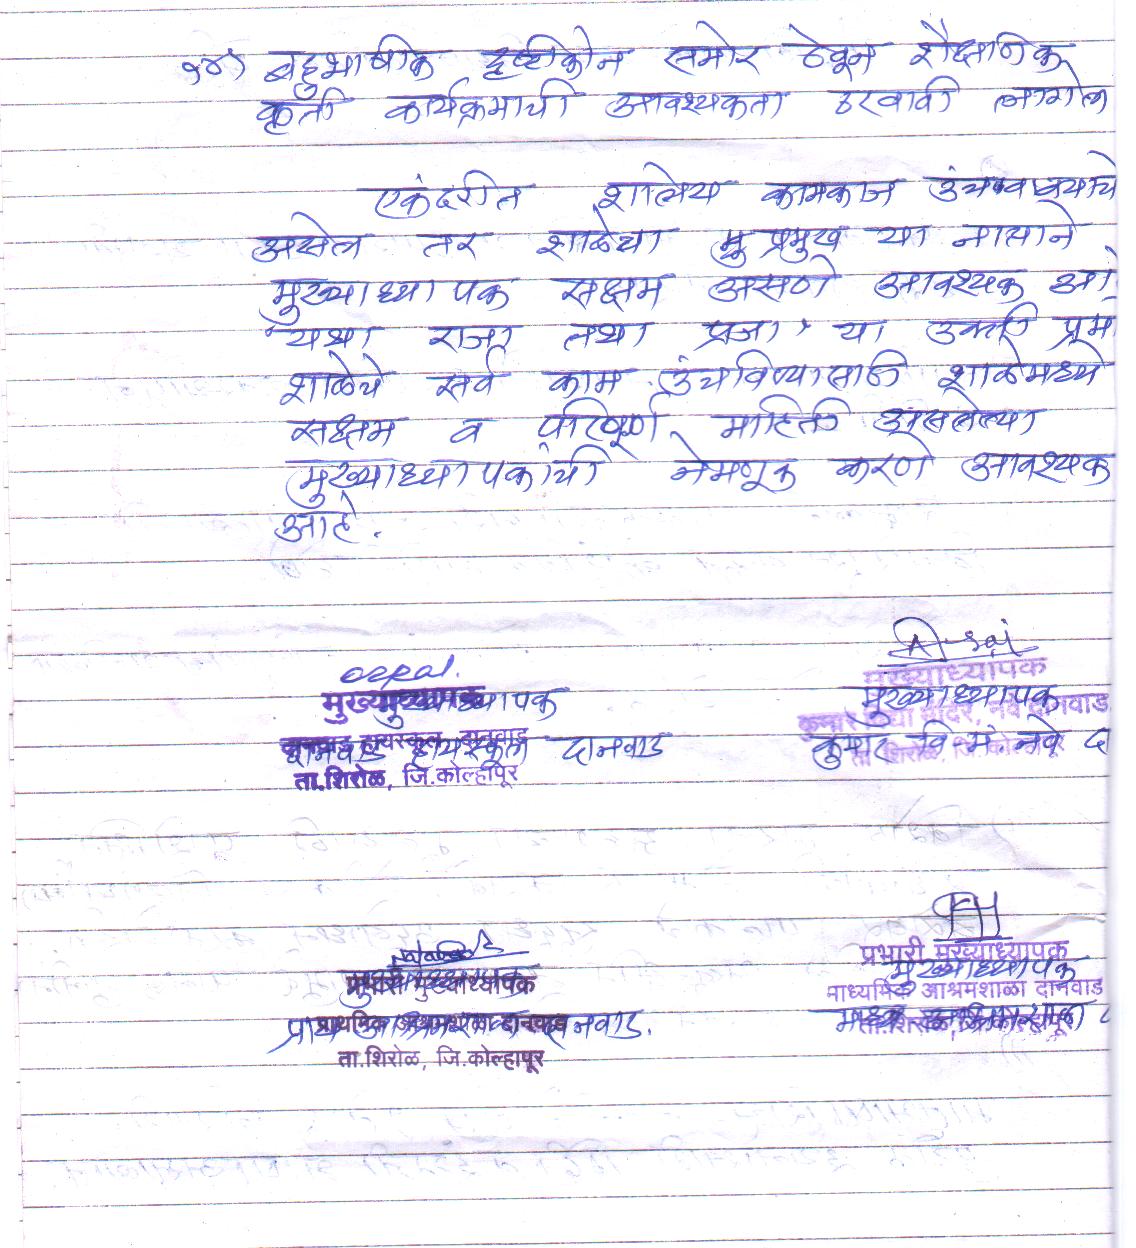 १४) बहुभाषीक दृष्टीकोन समोर ठेवून शैक्षणिक
कृती कार्यक्रमाची आवश्यकता ठरवावी लागेल
एकंदरीत शालेय कामकाज उंचावयाचे
असेल तर शाळेचा मु प्रमुख या नात्याने
मुख्याध्यापक सक्षम असणे आवश्यक आहे
यथा राजा तथा प्रजा' या उक्ती प्रम
शाळेचे सर्व काम उंचविण्यासाठी शाळेमध्ये
सक्षम व परिपूर्ण माहिती असलेल्या
मुख्याध्यापकांची नेमणूक करणे आवश्यक
आहे.
मुख्याध्यापक
मुख्याध्यापक
दानवाड हायस्कूल दानवाड
दानवाड हायस्कूल, दानवाड
ता.शिरोळ, जि.कोल्हापूर
मुख्याध्यापक
मुख्याध्यापक
कुमार विद्या मंदिर, नवे दानवाड
कुमार वि मं. नवे दा
ता. शिरोळ, जि.कोल्हापूर
मुख्याध्यापक
प्रभारी मुख्याध्यापक
प्राथमिक आश्रमशाळा दानवाड
प्राथ आश्रमशाळा दानवाड.
ता.शिरोळ, जि.कोल्हापूर
प्रभारी मुख्याध्यापक
मुख्याध्यापक
माध्यमिक आश्रमशाळा दानवाड
ता.शिरोळ, जि.कोल्हापूर